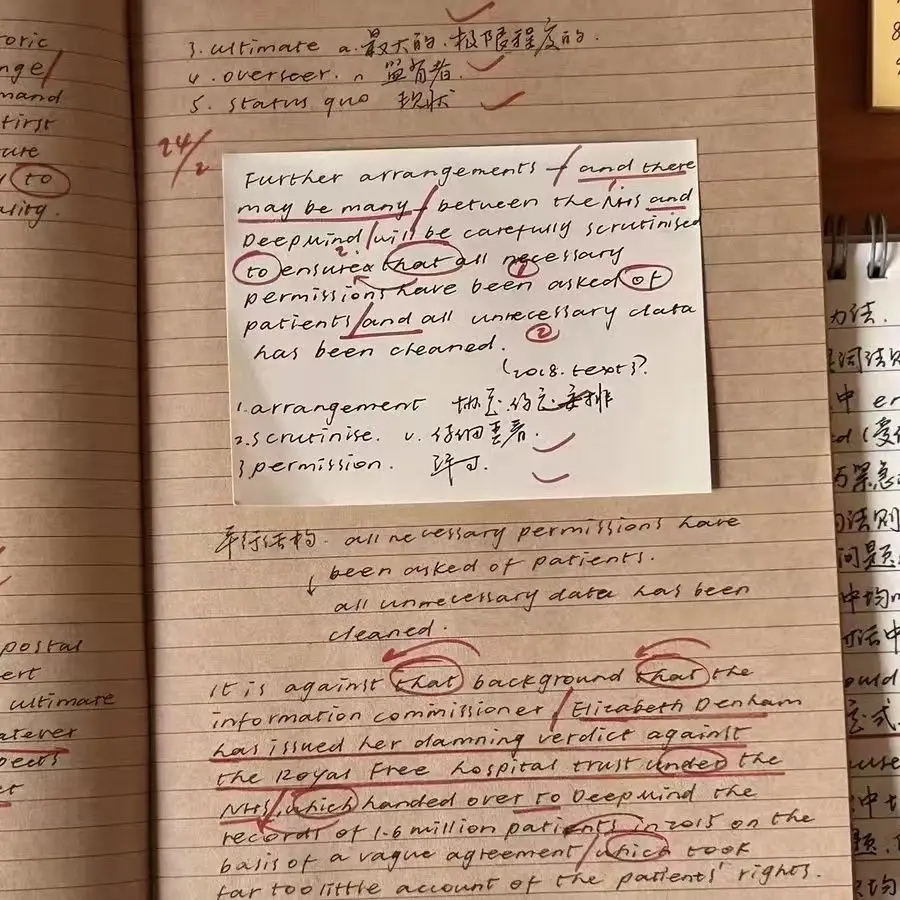 oric
nge/
mand
first
ure
to
ality.
postal
ert
ultimate
atever
pects
et
3. ultimate a. 最大的. 极限程度的.
4. overseer. n 监有者.
5. status quo 现状
24/2
Further arrangements / and there
may be many / between the NHS and
Deepmind / will be carefully scrutinised
2.
to ensure that all necessary
①
permissions have been asked of
patients / and all unnecessary data
②
has been cleaned.
(2018. text3)?
1. arrangement 协定.约定安排
2. scrutinise. v. 仔细查看.
3 permission. 许可.
平行结构. all necessary permissions have
been asked of patients.
↓
all unnecessary data has been
cleaned.
It is against that background that the
information commissioner / Elizabeth Denham
has issued her damning verdict against
the Royal Free hospital trust under the
NHS, which handed over to Deepmind the
records of 1.6 million patients in 2015 on the
basis of a vague agreement / which took
far too little account of the patients' rights.
8
力法.
词结
中 er
ed (受
紧急
法则
问题
中均
中
ould
式
use
中
题.
均